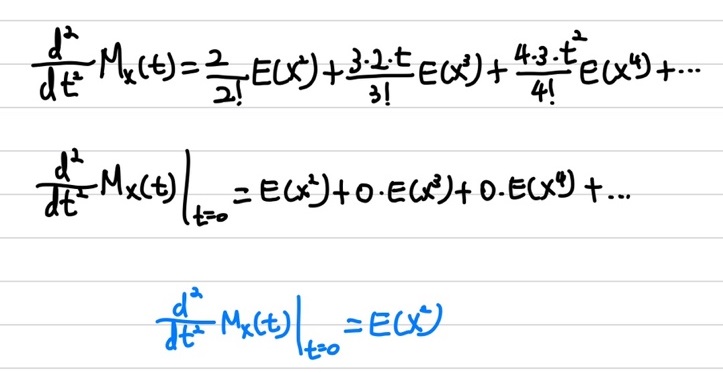 d²/dt² Mₓ(t) = 2/2! E(x²) + 3·2·t/3! E(x³) + 4·3·t²/4! E(x⁴) + ...
d²/dt² Mₓ(t)|ₜ₌₀ = E(x²) + 0·E(x³) + 0·E(x⁴) + ...
d²/dt² Mₓ(t)|ₜ₌₀ = E(x²)